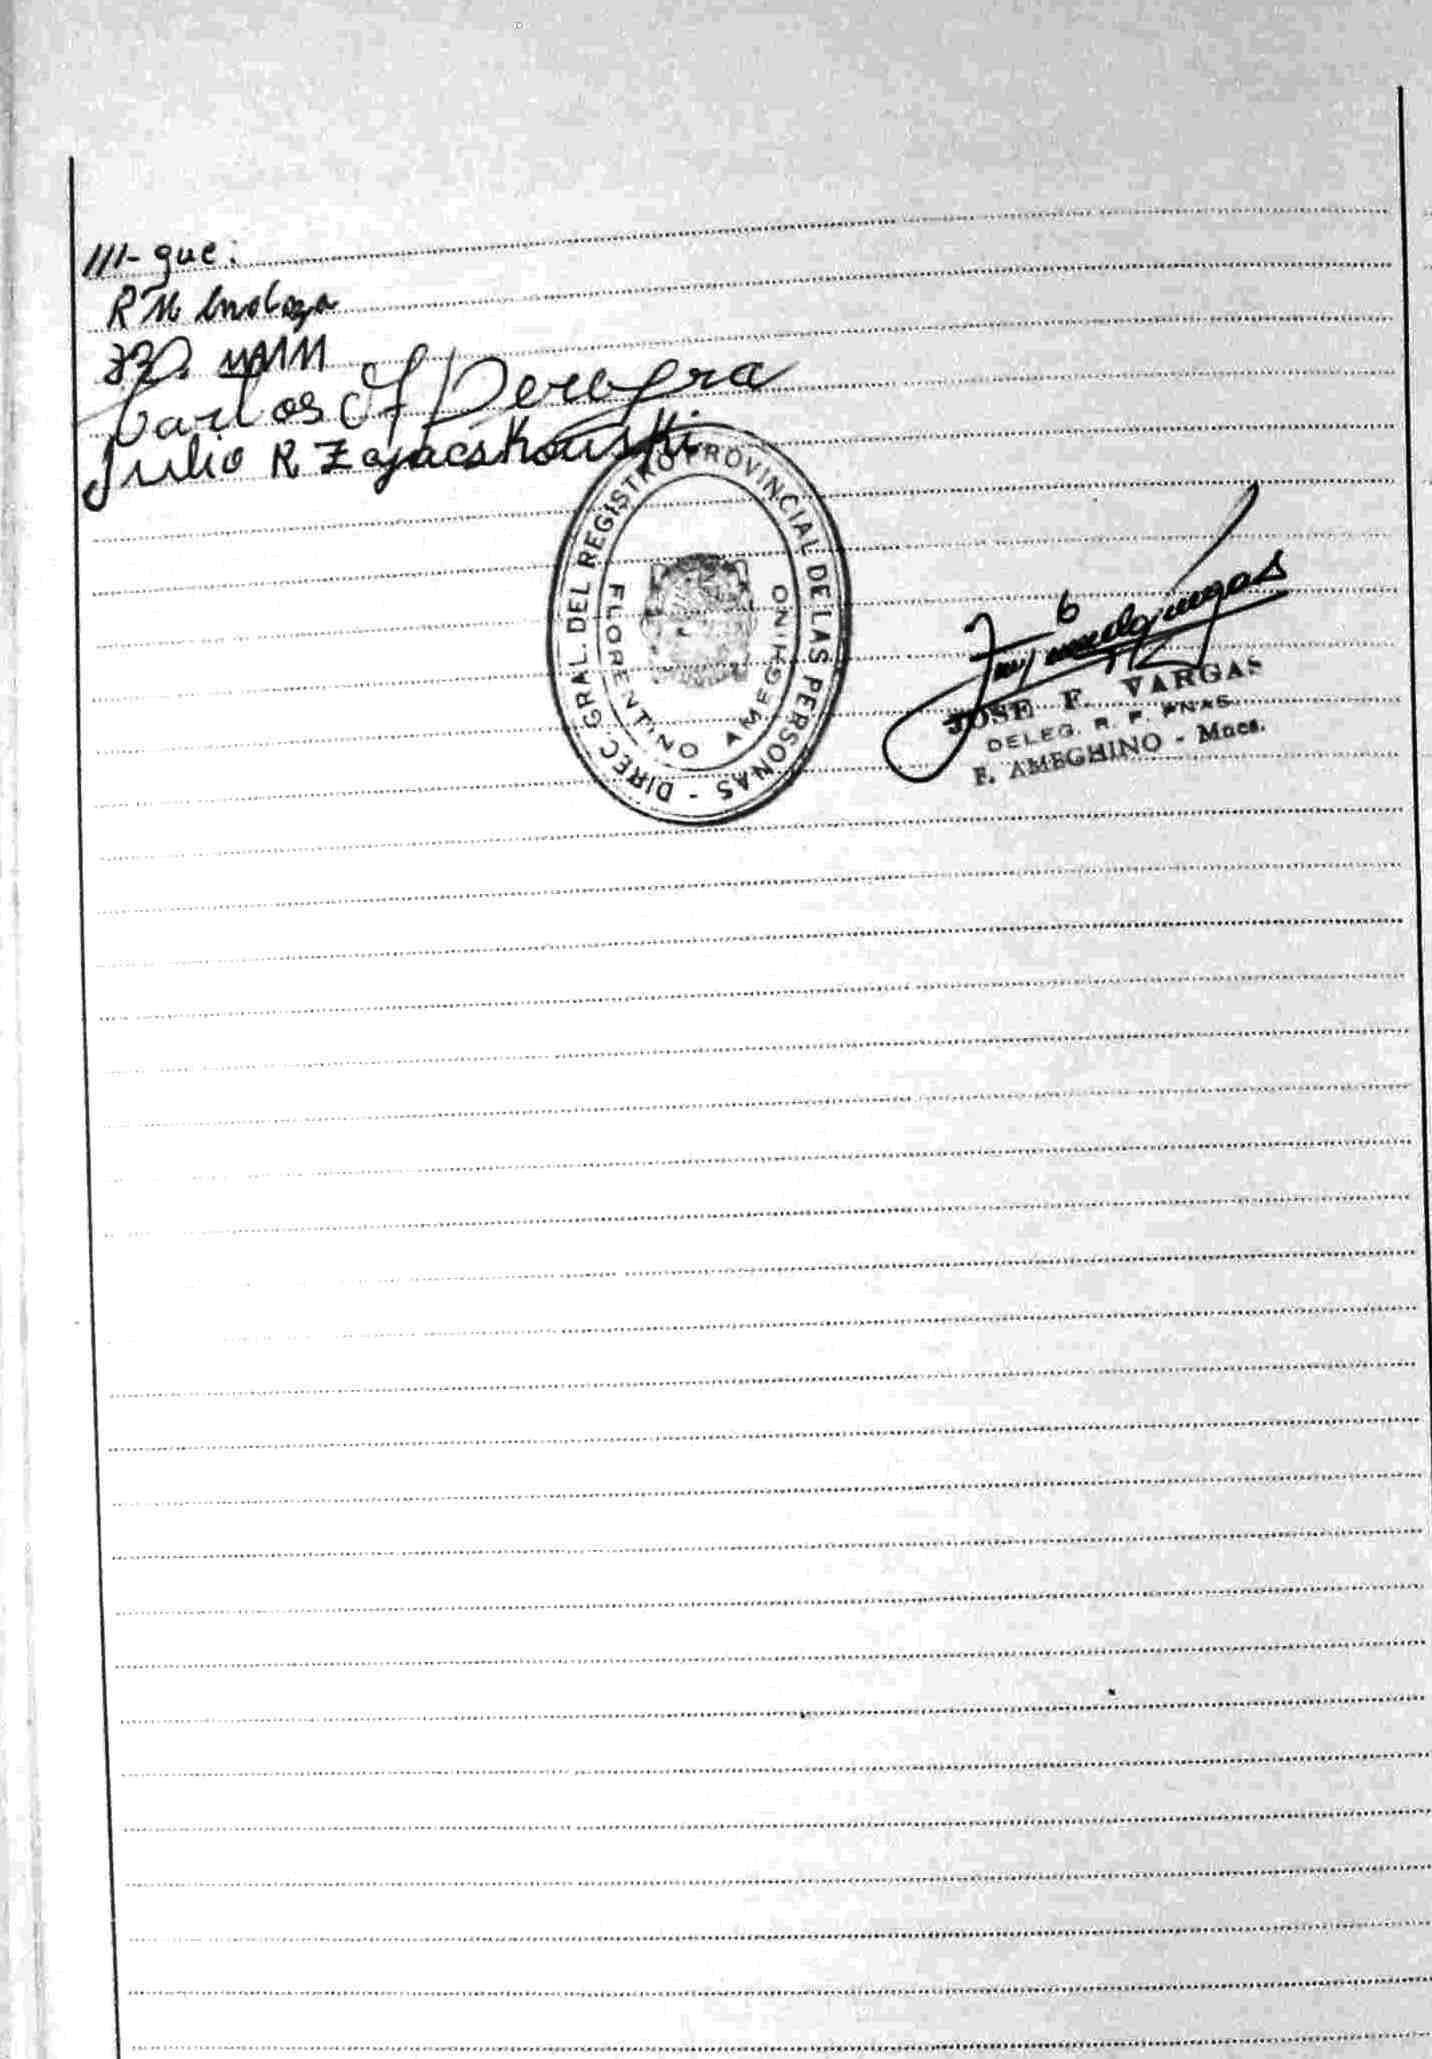 ///- que:
R Mendoza
Carlos A Pereyra
Julio R Zajacskouski
DIREC. GRAL. DEL REGISTRO PROVINCIAL DE LAS PERSONAS -
FLORENTINO AMEGHINO
JOSE F. VARGAS
DELEG. R. P. PNAS.
F. AMEGHINO - Mnes.